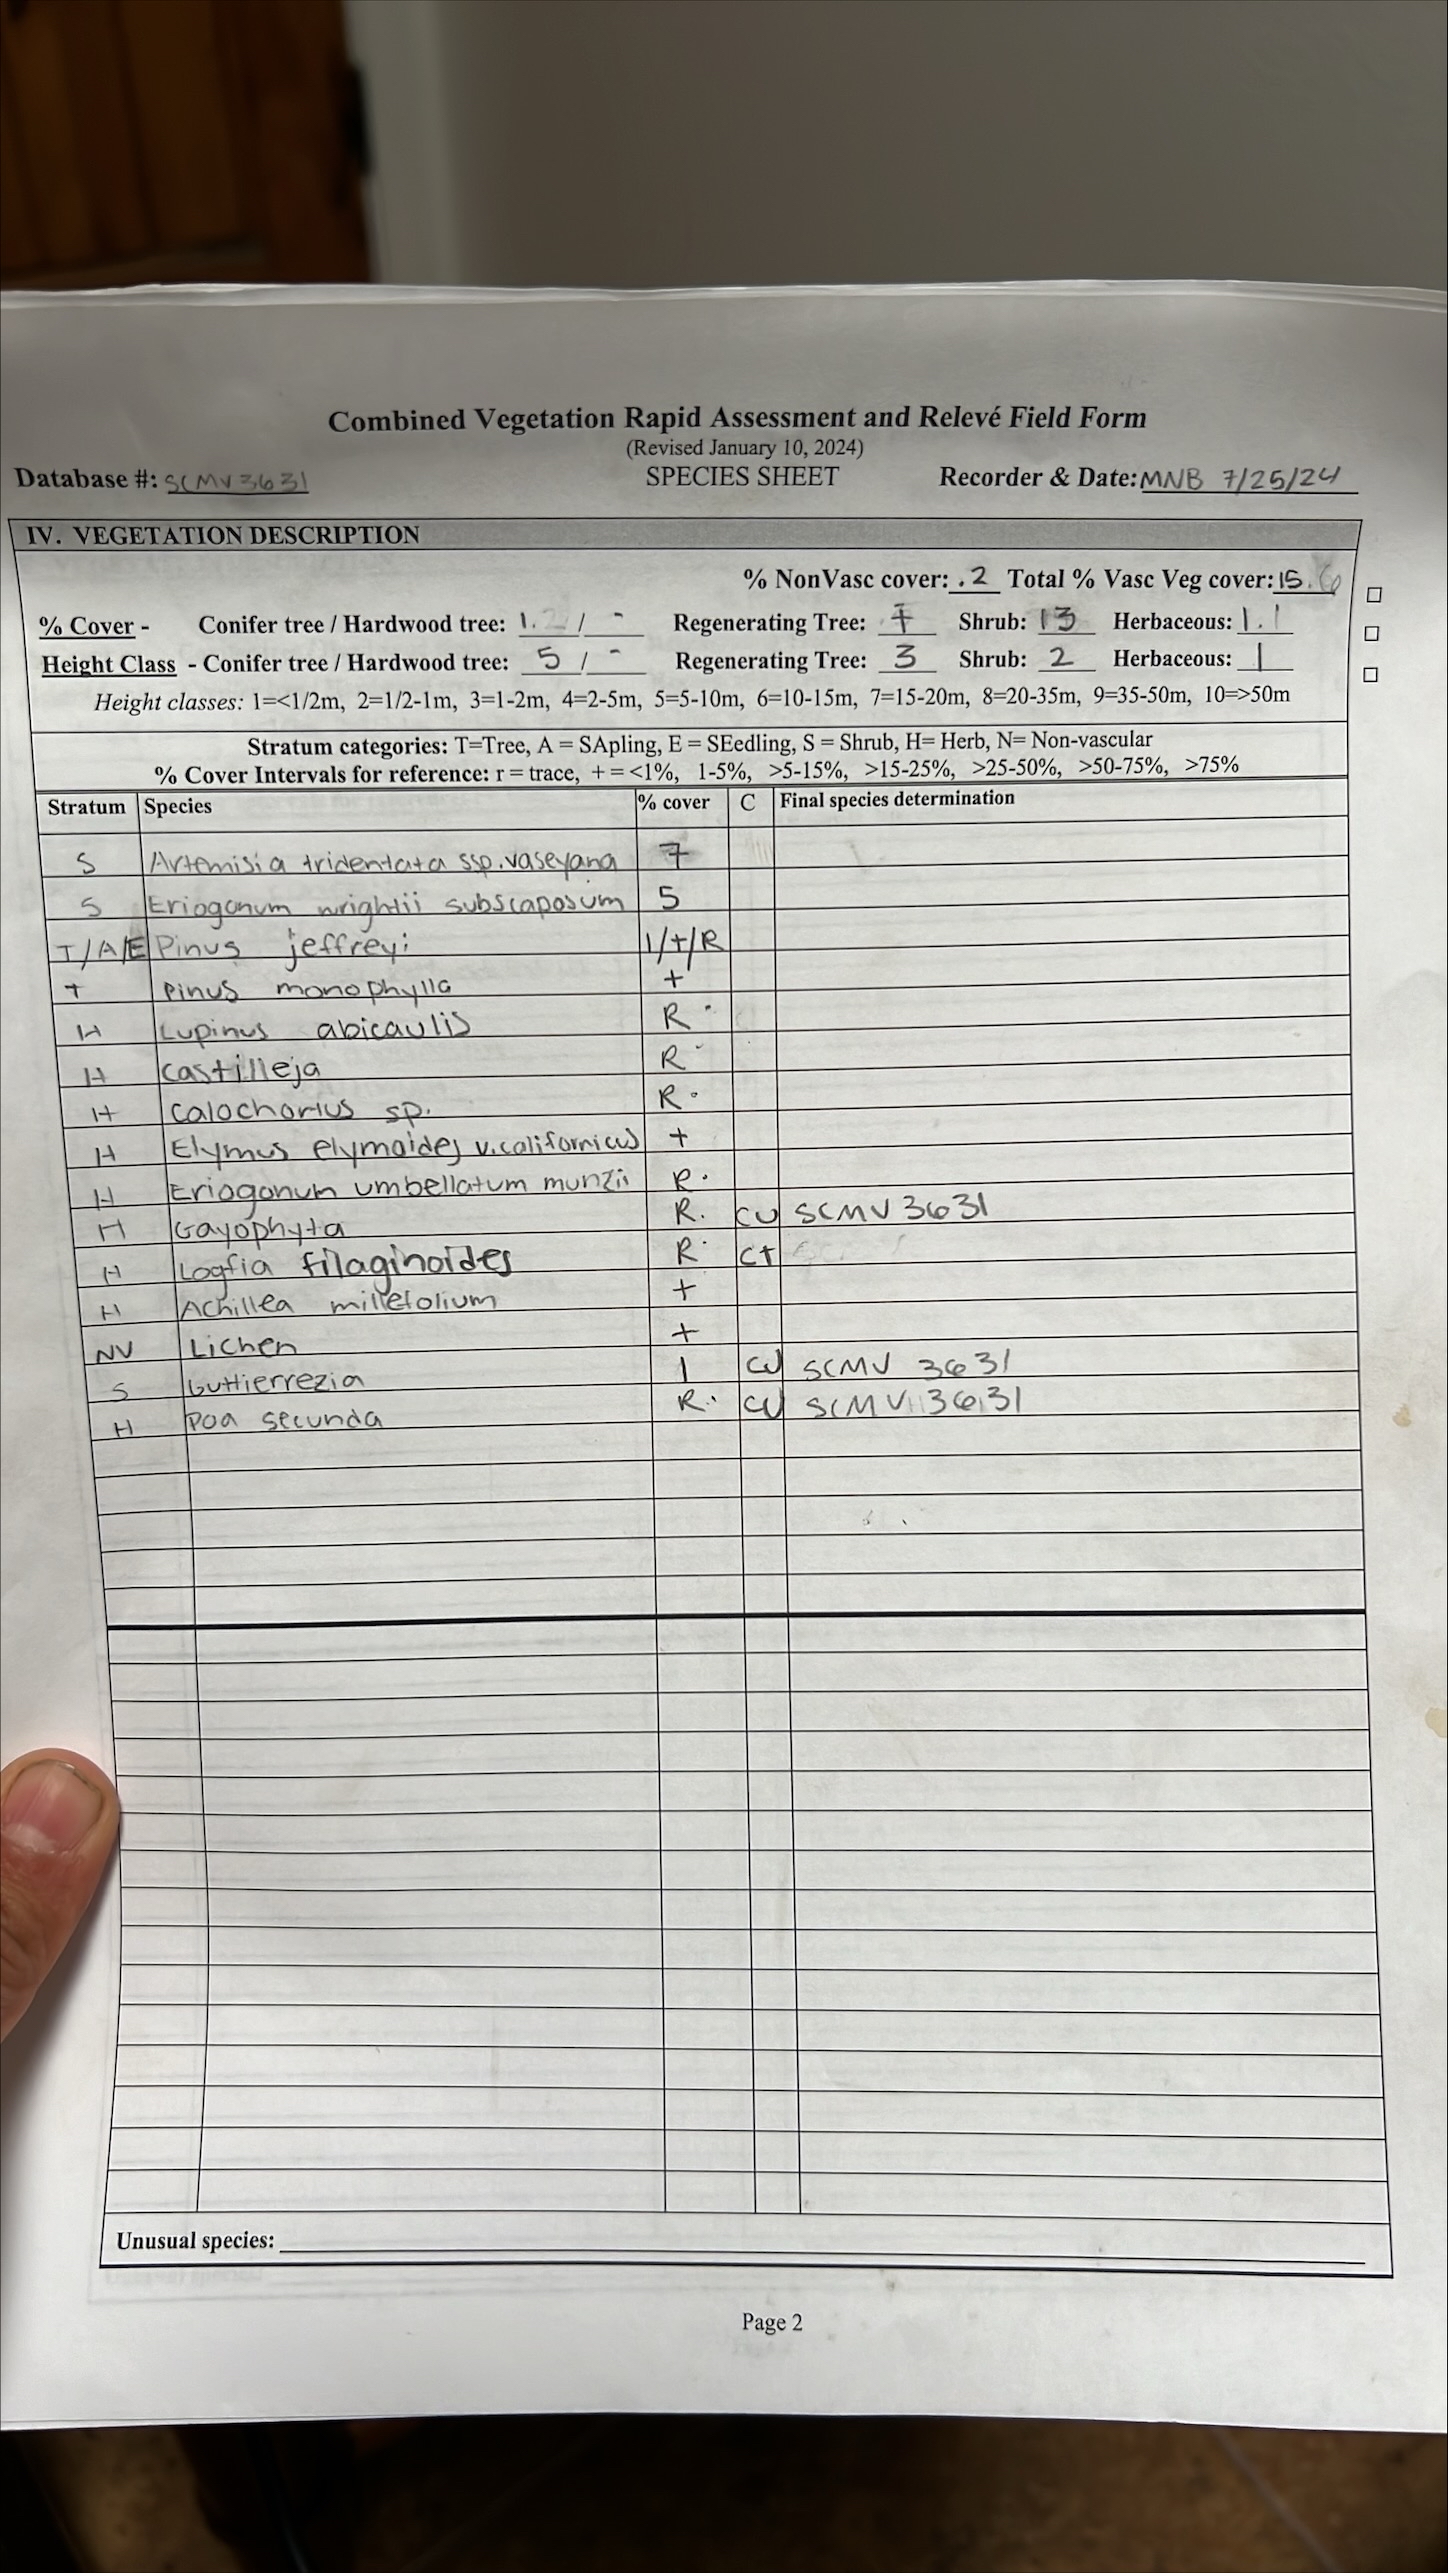 Combined Vegetation Rapid Assessment and Relevé Field Form
(Revised January 10, 2024)
Database #: SCMV3631 SPECIES SHEET Recorder & Date: MNB 7/25/24
IV. VEGETATION DESCRIPTION
% NonVasc cover: .2 Total % Vasc Veg cover: 15.6
% Cover - Conifer tree / Hardwood tree: 1.2 / - Regenerating Tree: + Shrub: 13 Herbaceous: 1.1
Height Class - Conifer tree / Hardwood tree: 5 / - Regenerating Tree: 3 Shrub: 2 Herbaceous: 1
Height classes: 1=<1/2m, 2=1/2-1m, 3=1-2m, 4=2-5m, 5=5-10m, 6=10-15m, 7=15-20m, 8=20-35m, 9=35-50m, 10=>50m
Stratum categories: T=Tree, A = SApling, E = SEedling, S = Shrub, H= Herb, N= Non-vascular
% Cover Intervals for reference: r = trace, + = <1%, 1-5%, >5-15%, >15-25%, >25-50%, >50-75%, >75%
Stratum Species % cover C Final species determination
S Artemisia tridentata ssp. vaseyana 7
S Eriogonum wrightii subscaposum 5
T/A/E Pinus jeffreyi 1/+/R
T Pinus monophylla +
H Lupinus abicaulis R
H Castilleja R
H Calochortus sp. R
H Elymus elymoides v. californicus +
H Eriogonum umbellatum munzii R
H Gayophyta R. CU SCMV3631
H Logfia filaginoides R Ct
H Achillea millefolium +
NV Lichen +
S Guttierrezia 1 CU SCMV 3631
H Poa secunda R CU SCMV 3631
Unusual species:
Page 2